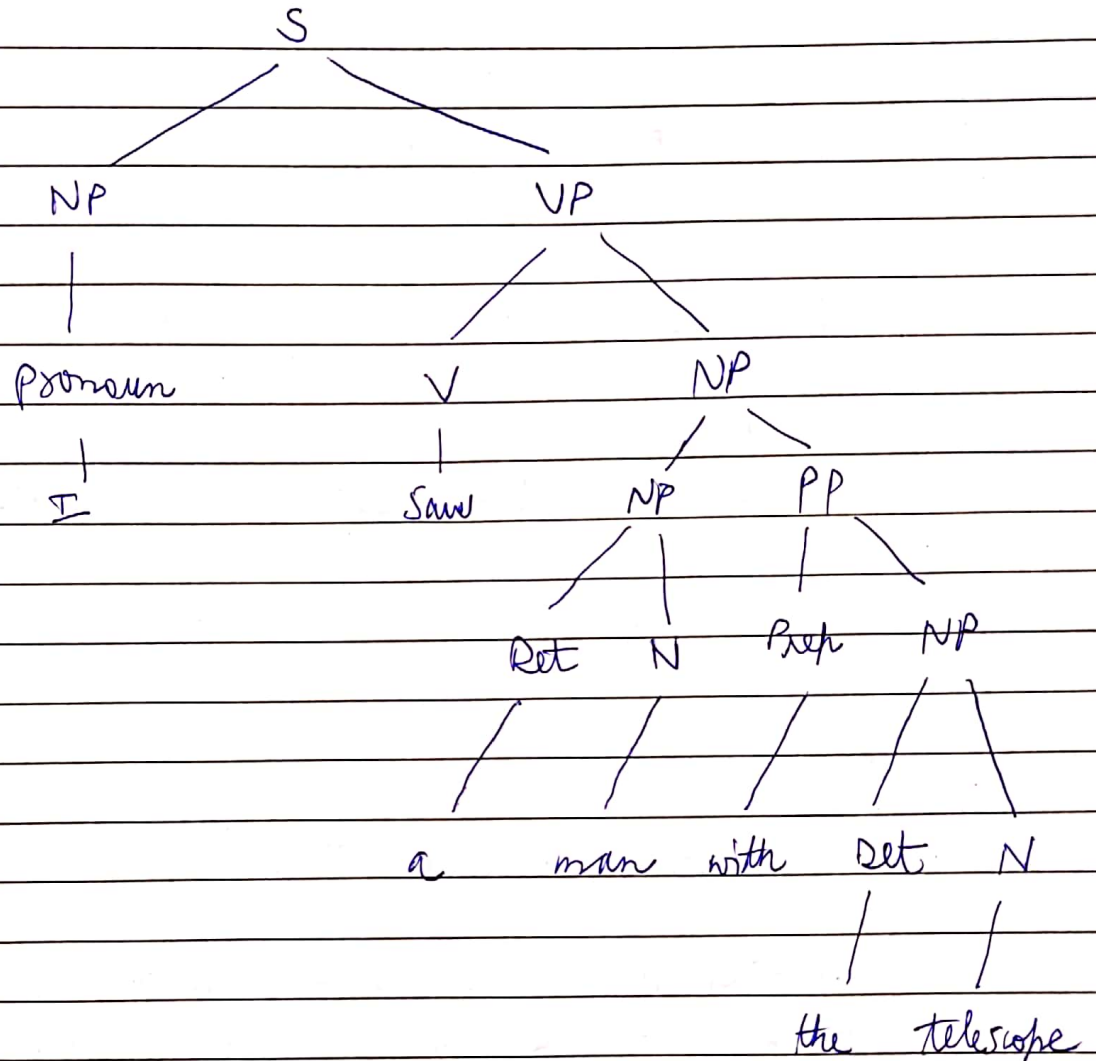 S
NP VP
Pronoun V NP
I Saw NP PP
Det N Prep NP
a man with Det N
the telescope